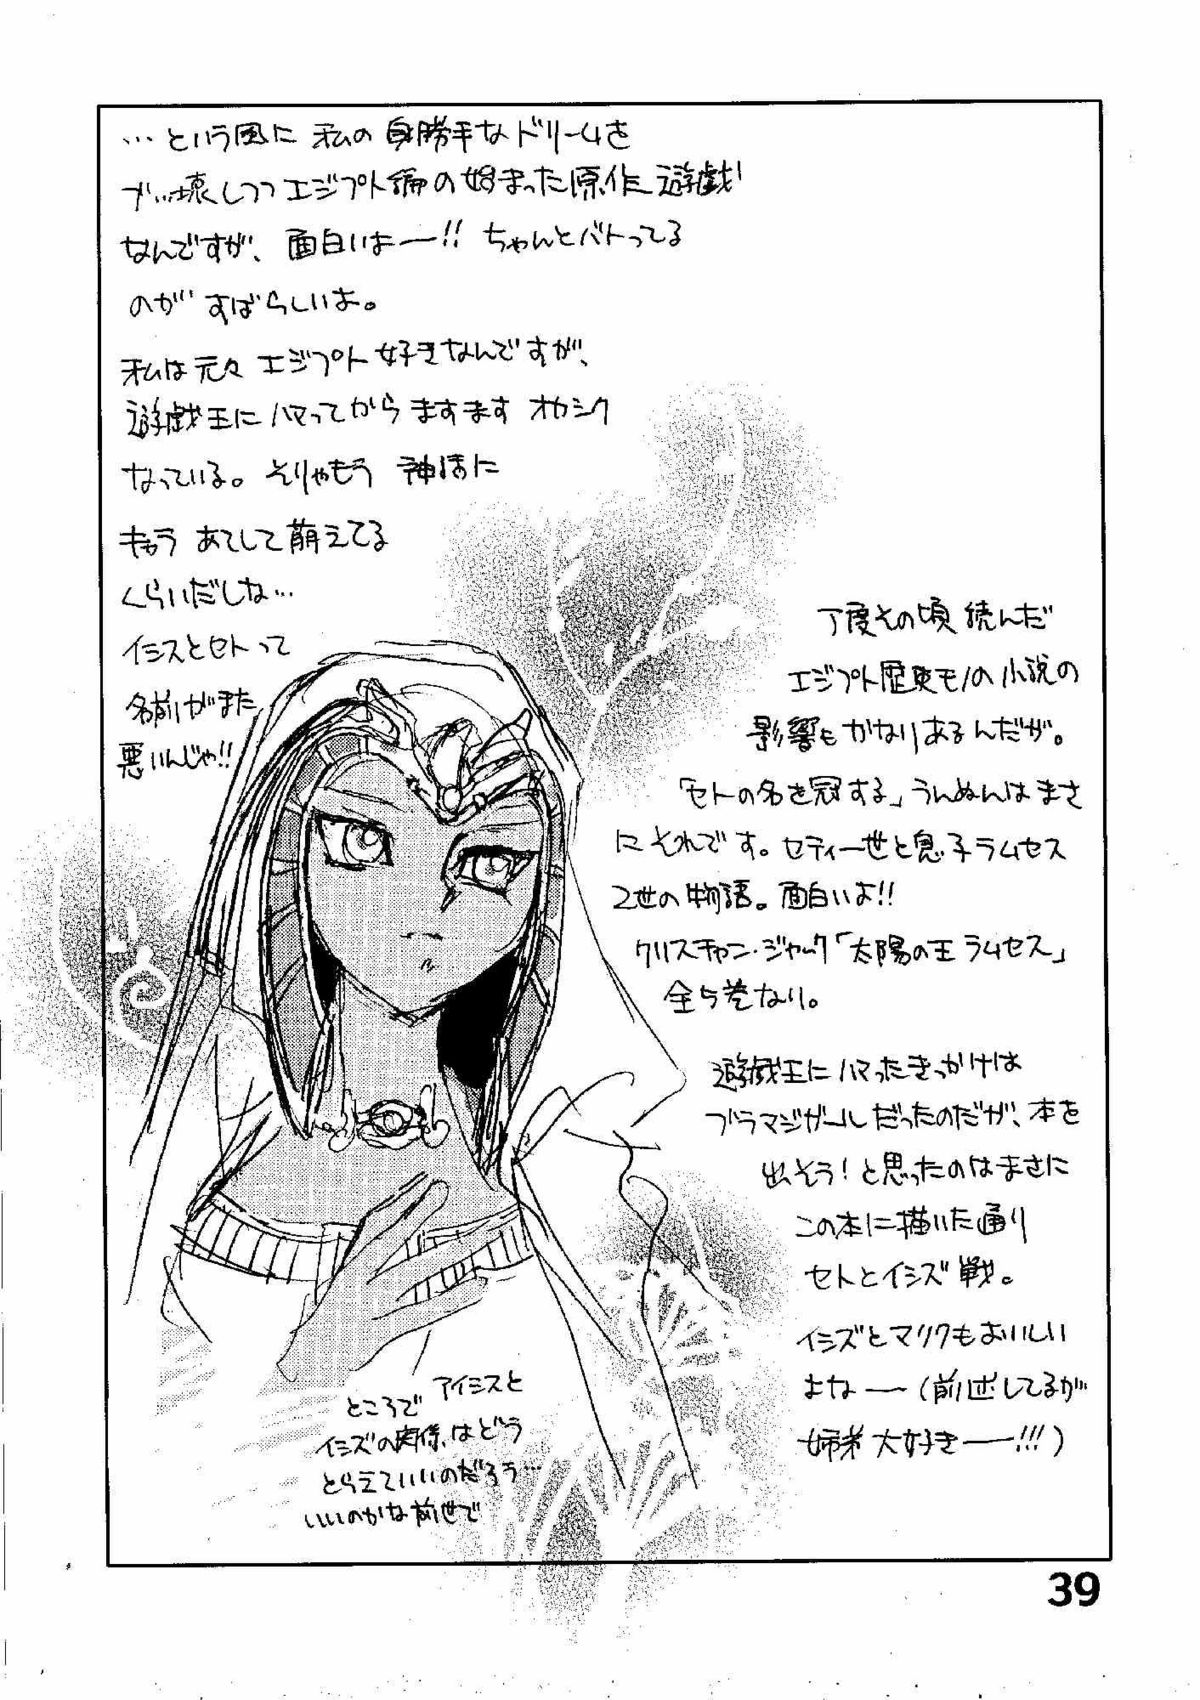 …という風に 私の身勝手なドリームを
ブッ壊しつつエジプト編の始まった原作遊戯
なんですが、面白いよー!! ちゃんとバトってる
のが すばらしいよ。
私は元々 エジプト好きなんですが、
遊戯王にハマってから ますます オカシク
なっている。そりゃもう 神話に
キャラ あてして萌えてる
くらいだしな…
イシスとセトって
名前がまた
悪いんじゃ!!
丁度その頃 読んだ
エジプト歴史モノの小説の
影響もかなりあるんだが。
「セトの名を冠する」うんぬんは まさ
に それです。セティ一世と息子ラムセス
2世の物語。面白いよ!!
クリスチャン・ジャック「太陽の王 ラムセス」
全5巻なり。
遊戯王にハマったきっかけは
ブラマジガールだったのだが、本を
出そう!と思ったのはまさに
この本に描いた通り
セトとイシズ戦。
イシズとマリクもおいしい
よなー(前述してるが
姉弟大好きー!!!)
ところで アイシスと
イシズの関係はどう
とらえていいのだろう…
いいのかな前世で
39